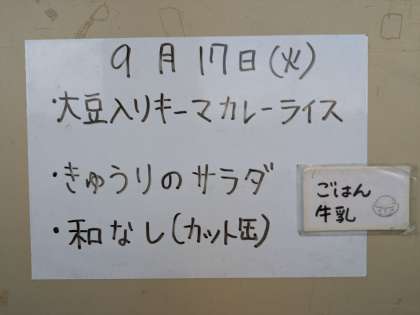 9月17日(火)
・大豆入りキーマカレーライス
・きゅうりのサラダ
・和なし(カット缶)
ごはん
牛乳